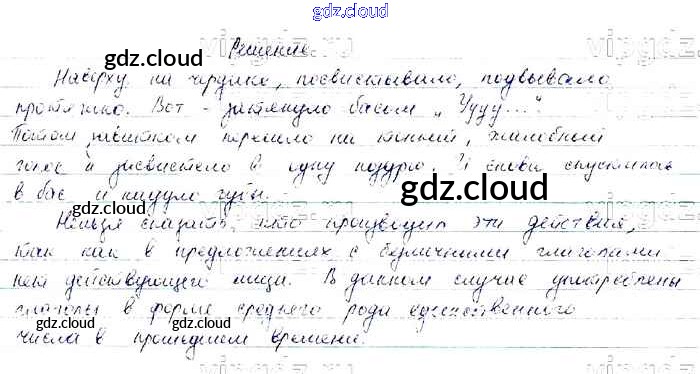 gdz.cloud
Решение.
gdz.cloud
Наверху на чердаке, посвистывало, подвывало
протяжно. Вот - затянуло басом „Ууу...“
Потом перешло на тонкий, жалобный
голос и засвистело в одну ноздрю. И снова спустилось
в бас и надуло губы.
gdz.cloud
gdz.cloud
Нельзя сказать, кто производил эти действия,
так как в предложениях с безличными глаголами
нет действующего лица. В данном случае употреблены
глаголы в форме среднего рода единственного
gdz.cloud
gdz.cloud
числа в прошедшем времени.